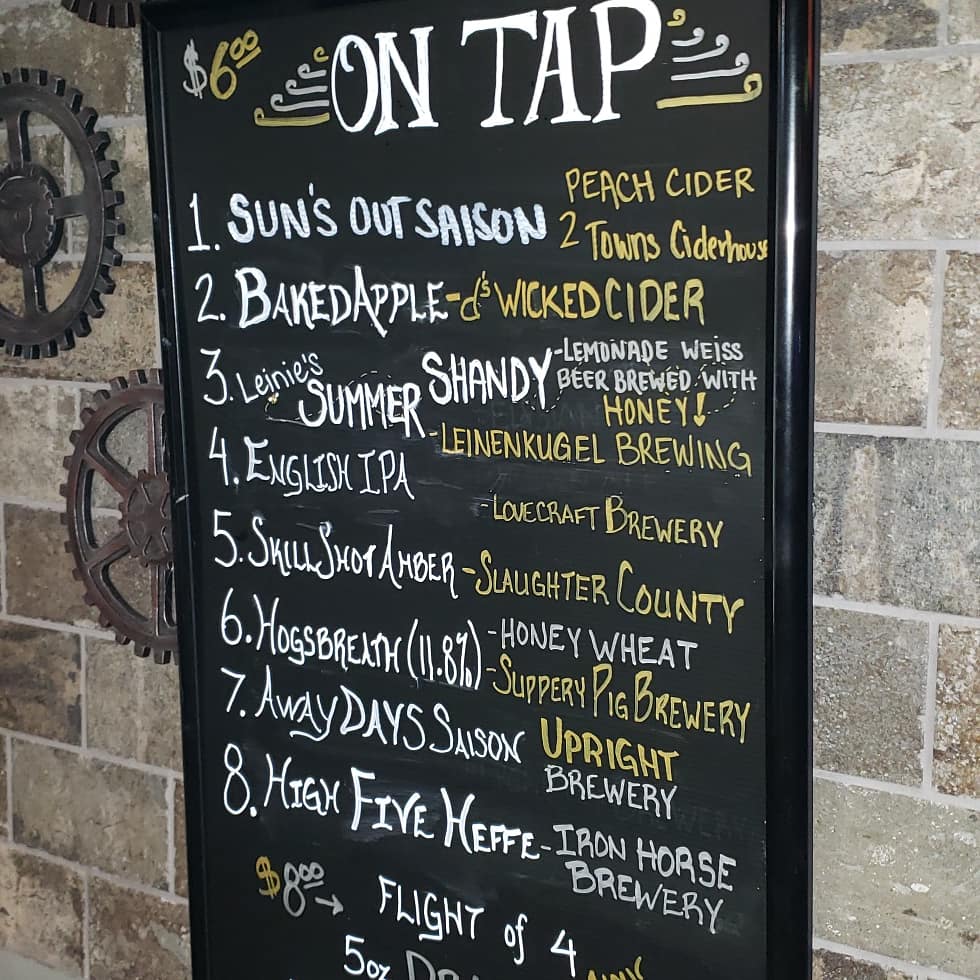 $6.00 ON TAP
PEACH CIDER
1. SUN'S OUT SAISON 2 Towns Ciderhouse
2. BAKED APPLE - d's WICKED CIDER
3. Leinie's SUMMER SHANDY - LEMONADE WEISS
BEER BREWED WITH
HONEY!
- LEINENKUGEL BREWING
4. ENGLISH IPA
- LOVECRAFT BREWERY
5. SKILLSHOT AMBER - SLAUGHTER COUNTY
6. HOGSBREATH (11.8%) - HONEY WHEAT
- SLIPPERY PIG BREWERY
7. AWAY DAYS SAISON UPRIGHT
BREWERY
8. HIGH FIVE HEFFE - IRON HORSE
BREWERY
$8.00 → FLIGHT of 4
5oz